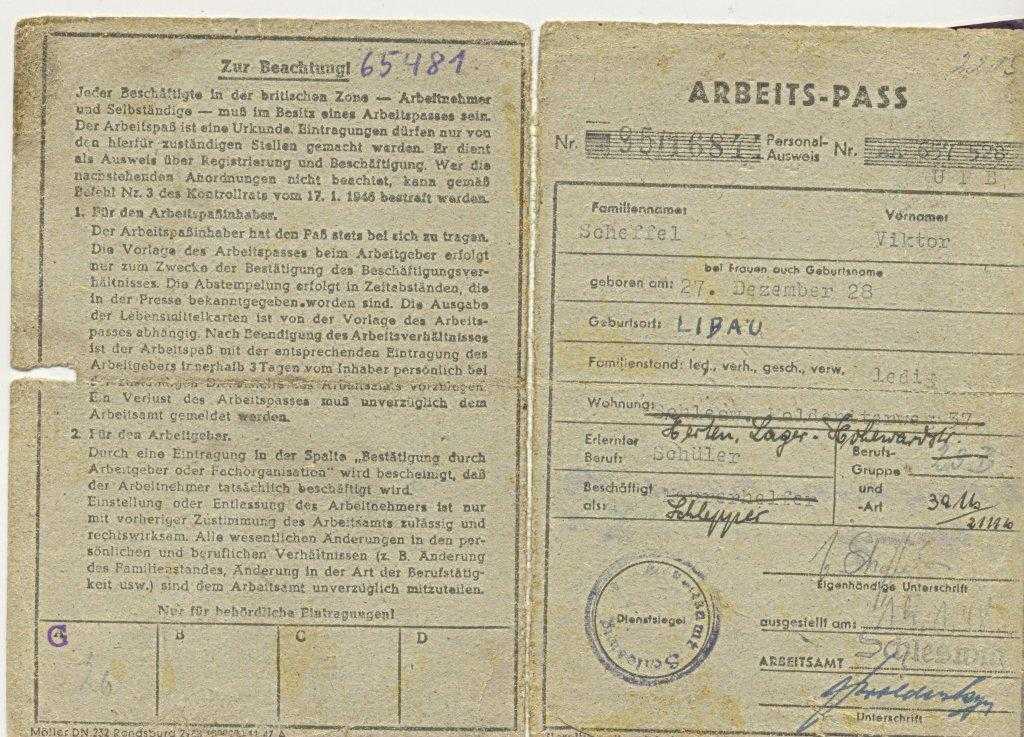 Zur Beachtung! 65481.
Jeder Beschäftigte in der britischen Zone — Arbeitnehmer
und Selbständige — muß im Besitz eines Arbeitspasses sein.
Der Arbeitspaß ist eine Urkunde. Eintragungen dürfen nur von
den hierfür zuständigen Stellen gemacht werden. Er dient
als Ausweis über Registrierung und Beschäftigung. Wer die
nachstehenden Anordnungen nicht beachtet, kann gemäß
Befehl Nr. 3 des Kontrollrats vom 17. 1. 1946 bestraft werden.
1. Für den Arbeitspaßinhaber.
Der Arbeitspaßinhaber hat den Paß stets bei sich zu tragen.
Die Vorlage des Arbeitspasses beim Arbeitgeber erfolgt
nur zum Zwecke der Bestätigung des Beschäftigungsver-
hältnisses. Die Abstempelung erfolgt in Zeitabständen, die
in der Presse bekanntgegeben worden sind. Die Ausgabe
der Lebensmittelkarten ist von der Vorlage des Arbeits-
passes abhängig. Nach Beendigung des Arbeitsverhältnisses
ist der Arbeitspaß mit der entsprechenden Eintragung des
Arbeitgebers innerhalb 3 Tagen vom Inhaber persönlich bei
der zuständigen Dienststelle des Arbeitsamts vorzulegen.
Ein Verlust des Arbeitspasses muß unverzüglich dem
Arbeitsamt gemeldet werden.
2. Für den Arbeitgeber.
Durch eine Eintragung in der Spalte „Bestätigung durch
Arbeitgeber oder Fachorganisation" wird bescheinigt, daß
der Arbeitnehmer tatsächlich beschäftigt wird.
Einstellung oder Entlassung des Arbeitnehmers ist nur
mit vorheriger Zustimmung des Arbeitsamts zulässig und
rechtswirksam. Alle wesentlichen Änderungen in den per-
sönlichen und beruflichen Verhältnissen (z. B. Änderung
des Familienstandes, Änderung in der Art der Berufstätig-
keit usw.) sind dem Arbeitsamt unverzüglich mitzuteilen.
Nur für behördliche Eintragungen!
A B C D
G
Möller DN 232 Rendsburg
ARBEITS-PASS
Nr. 95/16841 Personal-Ausweis Nr.
Familienname: Vorname:
Scheffel Viktor
bei Frauen auch Geburtsname
geboren am: 27. Dezember 28
Geburtsort: LIBAU
Familienstand: led., verh., gesch., verw. ledig
Wohnung: 37
Herten, Lager - Hohewardstr.
Erlernter Beruf: Schüler
Berufs-Gruppe und -Art
Beschäftigt als:
Schlepper
Eigenhändige Unterschrift
Dienstsiegel
ausgestellt am:
ARBEITSAMT Schleswig
Unterschrift